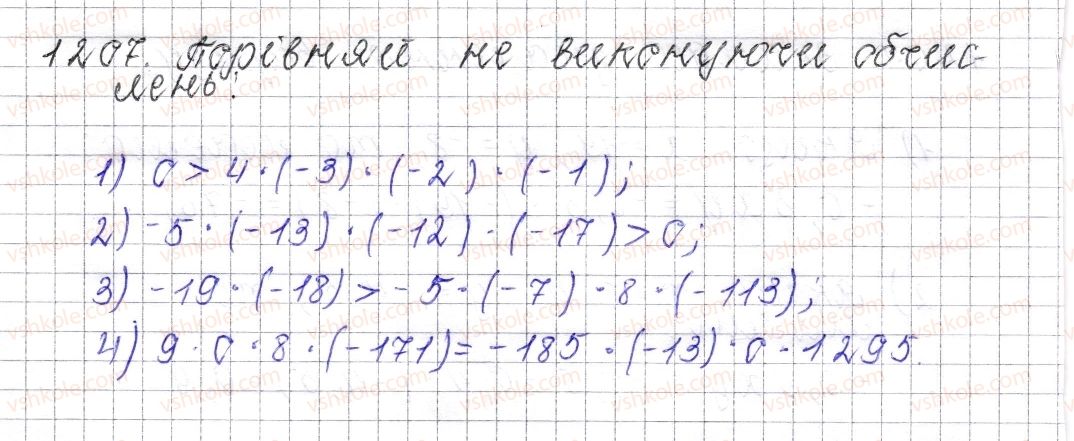 1207. Порівняй не виконуючи обчис-
лень:
1) 0 > 4 · (-3) · (-2) · (-1);
2) -5 · (-13) · (-12) · (-17) > 0;
3) -19 · (-18) > -5 · (-7) · 8 · (-113);
4) 9 · 0 · 8 · (-171) = -185 · (-13) · 0 · 1295.